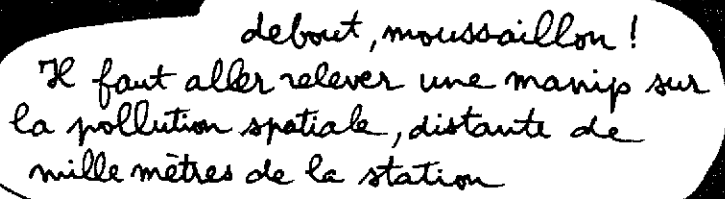 debout, moussaillon !
Il faut aller relever une manip sur
la pollution spatiale, distante de
mille mètres de la station